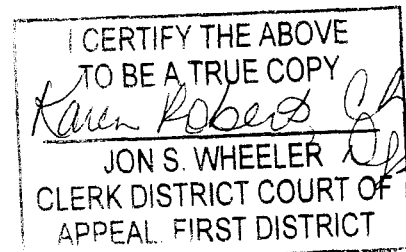 I CERTIFY THE ABOVE
TO BE A TRUE COPY
Karen Roberts
JON S. WHEELER
CLERK DISTRICT COURT OF
APPEAL FIRST DISTRICT